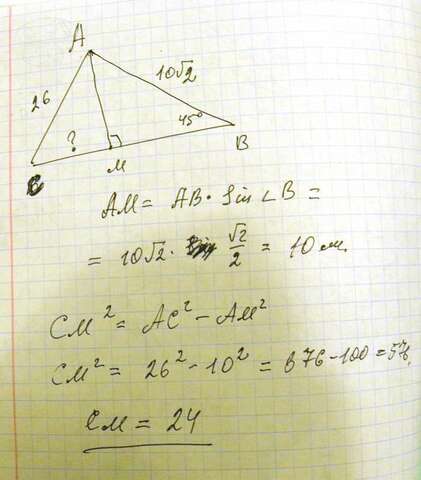 A
26
10√2
?
45°
C
M
B
AM = AB · Sin ∠B =
= 10√2 · √2/2 = 10 см.
CM² = AC² - AM²
CM² = 26² - 10² = 676 - 100 = 576.
CM = 24